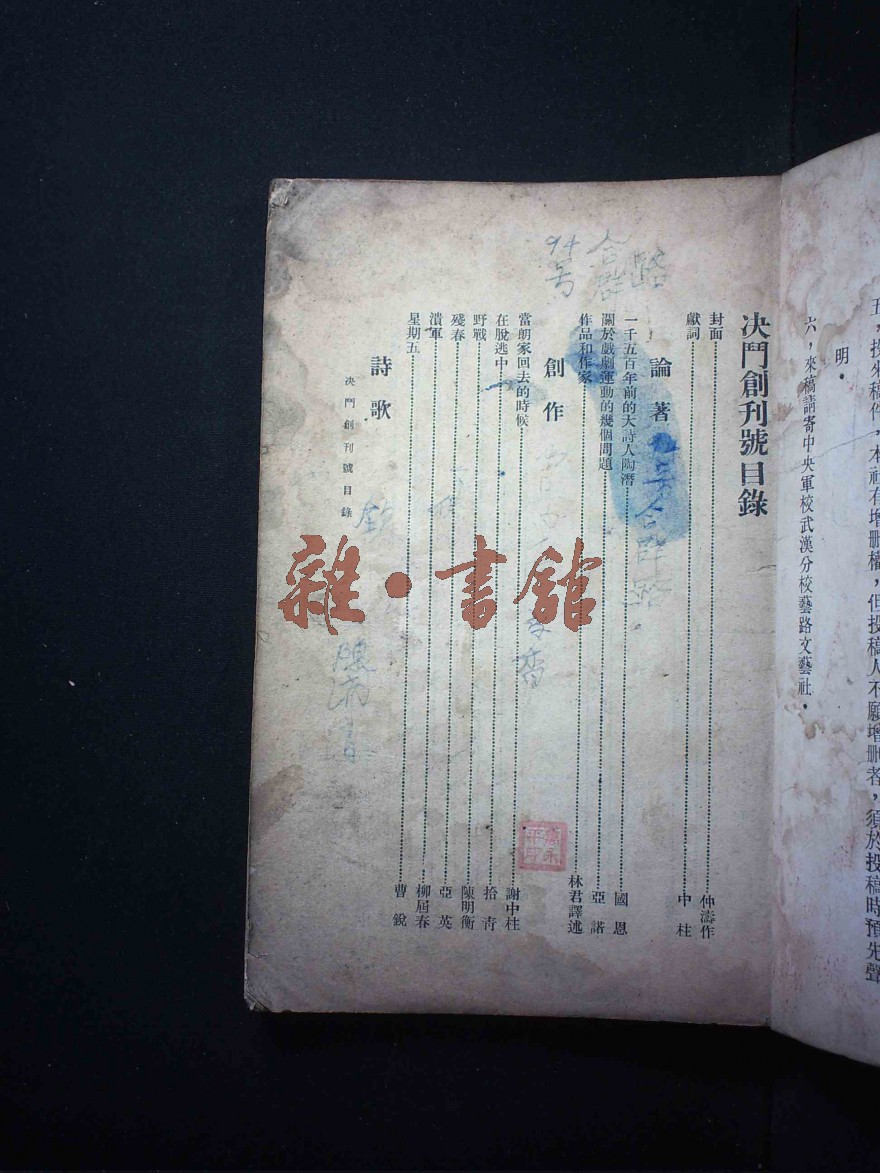 五，投來稿件，本社有增删權，但投稿人不願增删者，須於投稿時預先聲
明．
六，來稿請寄中央軍校武漢分校藝路文藝社．
决鬥創刊號目錄
封面 仲濤作
獻詞 中柱
論著
一千五百年前的大詩人陶潛 國恩
關於戲劇運動的幾個問題 亞諾
作品和作家 林君譯述
創作
當朗家回去的時候 謝中柱
在脫逃中 拾青
野戰 陳明衡
殘春 亞英
潰軍 柳屆春
星期五 曹銳
詩歌
决鬥創刊號目錄
94号
合群路
合群路
雜·書館